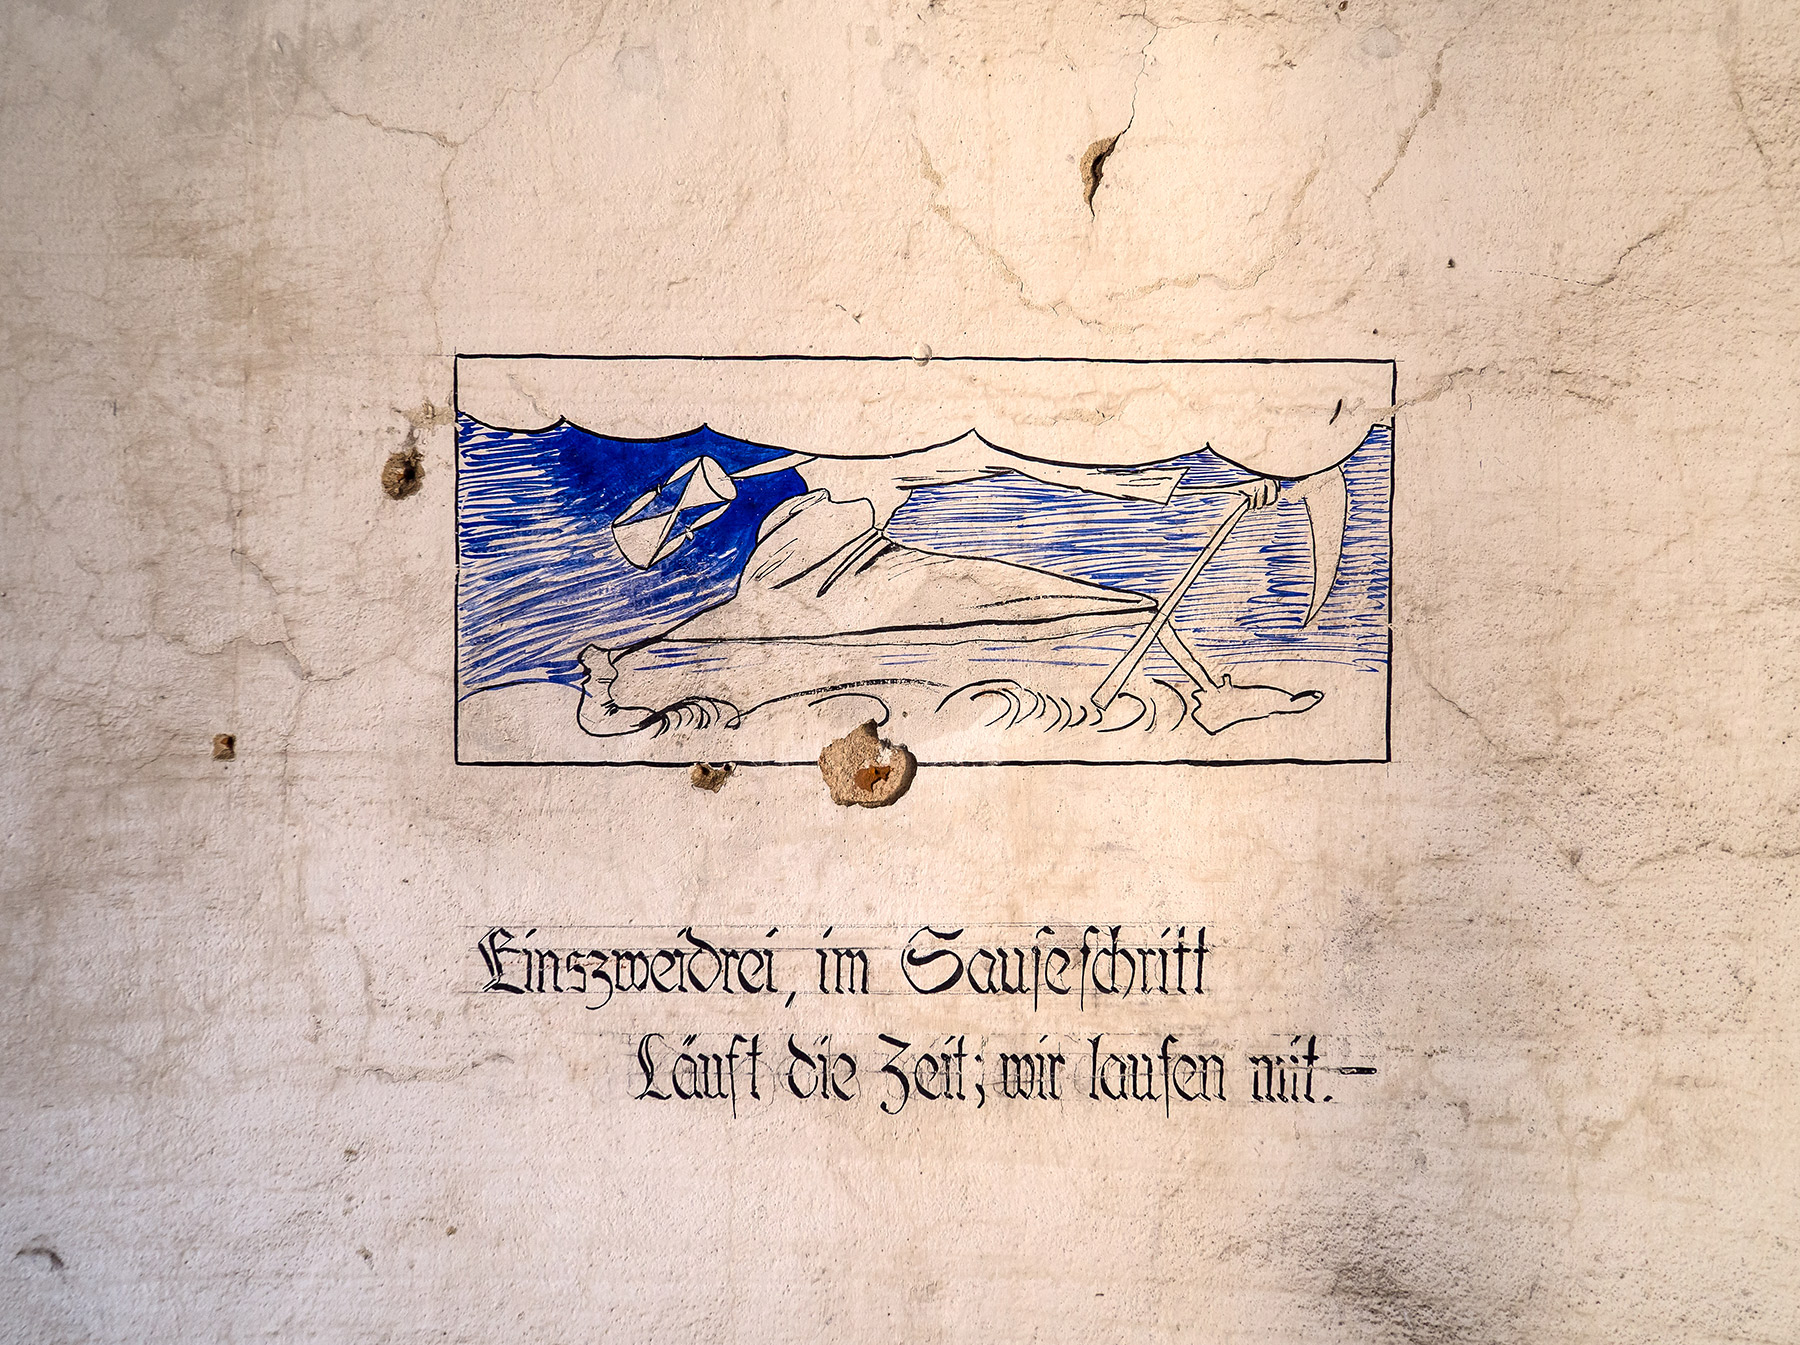 Einszweidrei, im Sauseschritt
Läuft die Zeit; wir laufen mit.–